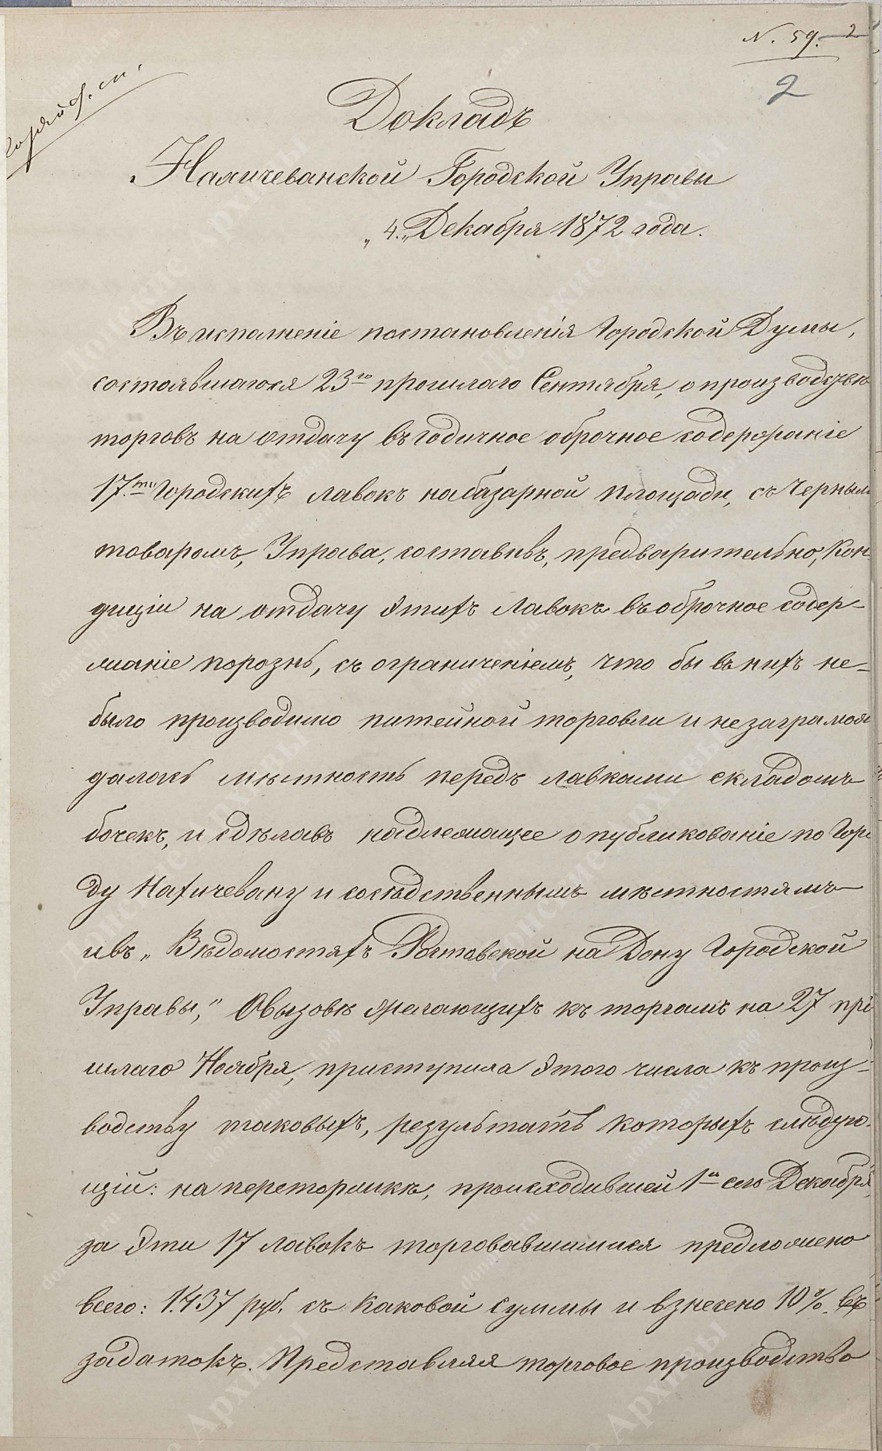 N. 59. 2
2
Докладъ
Нахичеванской Городской Управы
„4.„ Декабря 1872 года.
Въ исполненіе постановленія Городской Думы,
состоявшагося 23го прошлаго Сентября, о производствѣ
торговъ на отдачу въ годичное оброчное содержаніе
17.ти Городскихъ лавокъ на базарной площади, съ Чернымъ
товаромъ, Управа, составивъ, предварительно, Кон-
диціи на отдачу этихъ лавокъ въ оброчное содер-
жаніе порознь, съ ограниченіемъ, что бы въ нихъ не-
было производимо питейной торговли и незагромож
далась мѣстность передъ лавками складомъ
бочекъ, и сдѣлавъ надлежащее опубликованіе по Горо
ду Нахичевану и сосѣдственнымъ мѣстностямъ
и въ „Вѣдомостяхъ Ростовской на Дону Городской
Управы," О вызовѣ желающихъ къ торгамъ на 27 про
шлаго Ноября, приступила этого числа къ произ-
водству таковыхъ, результатъ которыхъ слѣдую-
щій: на переторжкѣ, происходившей 1го сего Декабря,
за эти 17 лавокъ торговавшимися предложено
всего: 1.437 руб. съ каковой суммы и взнесено 10%. въ
задатокъ. Представляя торговое производство